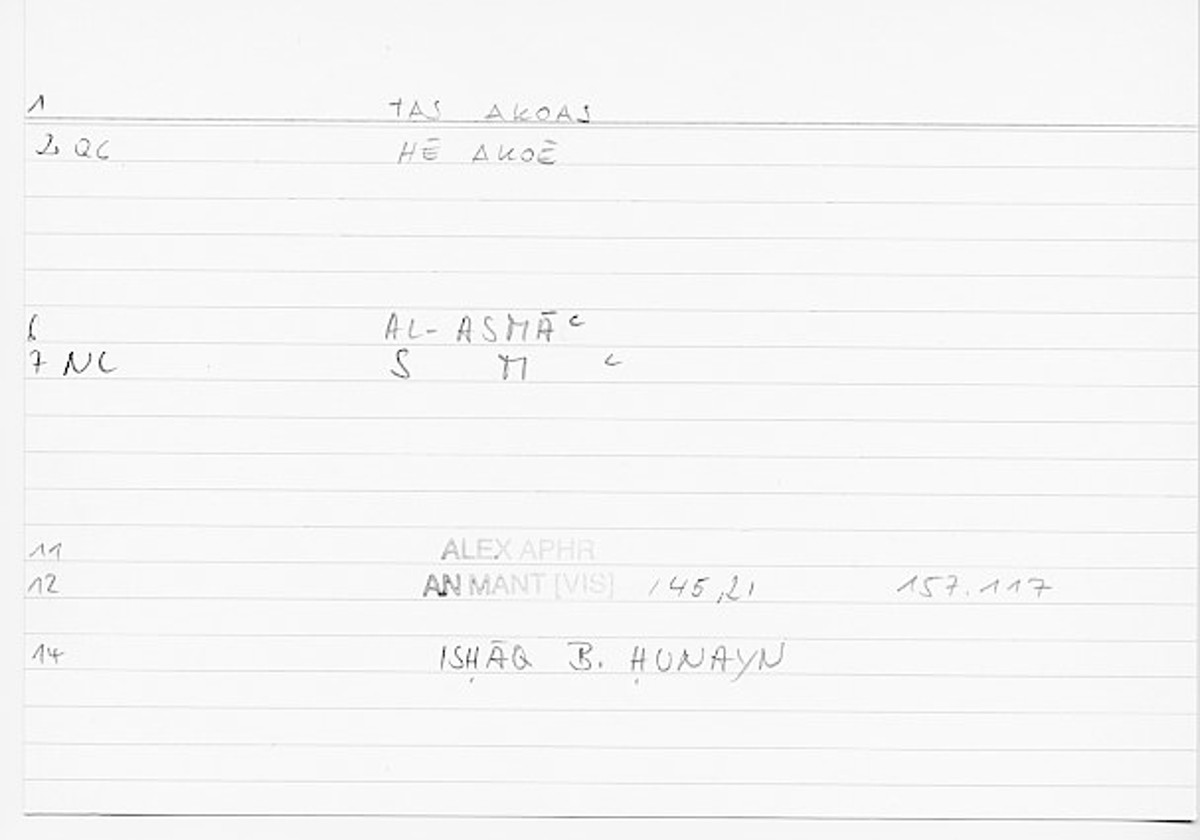 1 TAS AKOAS
2 QC HĒ AKOĒ
6 AL-ASMĀʿ
7 NC S M ʿ
11 ALEX APHR
12 AN MANT [VIS] 145,21 157.117
14 ISḤĀQ B. ḤUNAYN